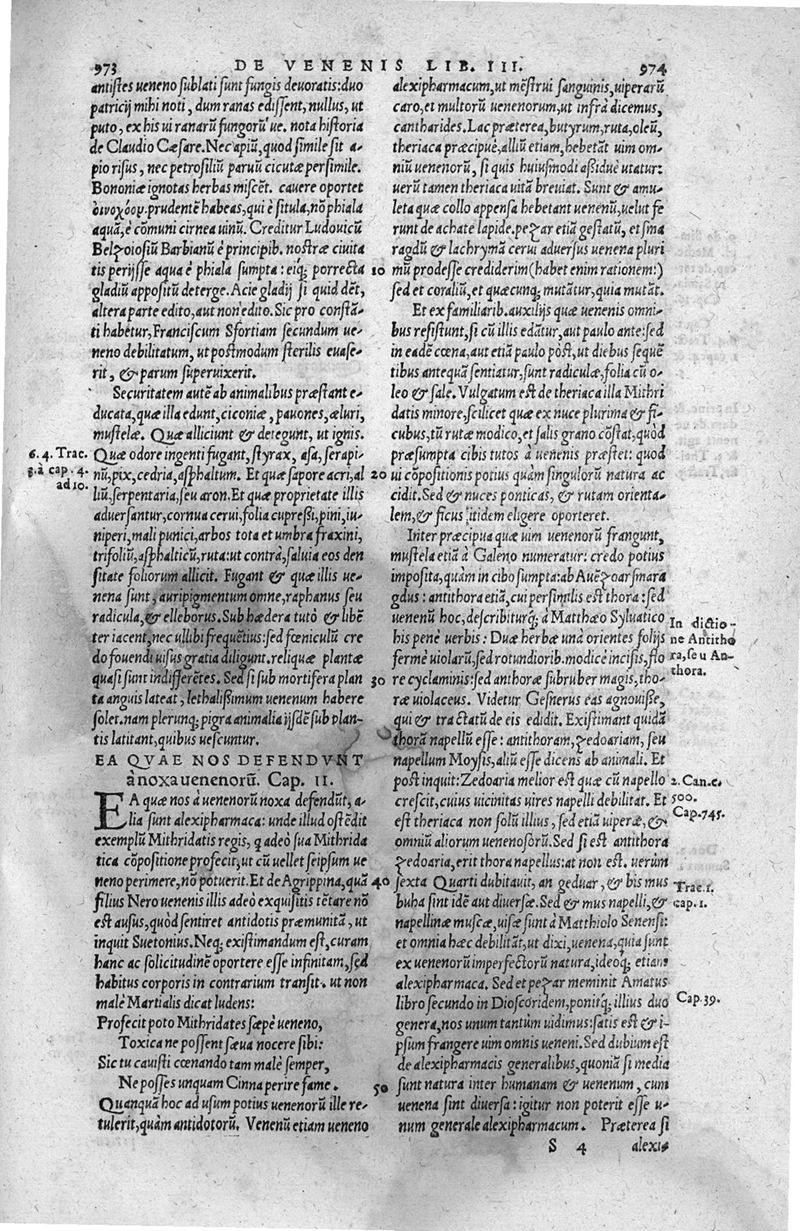 973 DE VENENIS LIB. III. 974
antistes ueneno sublati sunt fungis deuoratis: duo
patricij mihi noti, dum ranas edissent, nullus, ut
puto, ex his ui ranarũ fungorũ ue. nota historia
de Claudio Cæsare. Nec apiũ, quod simile sit a-
pio risus, nec petrosiliũ paruũ cicutæ persimile.
Bononiæ ignotas herbas miscẽt. cauere oportet
οἰνοχόον. prudentẽ habeas, qui è situla, nõ phiala
aquã, è cõmuni cirnea uinũ. Creditur Ludouicũ
Belʒoiosiũ Barbianũ è principib. nostræ ciuita
tis perijsse aqua è phiala sumpta: eiq; porrecta
gladiũ appositũ deterge. Acie gladij si quid dẽt,
altera parte edito, aut non edito. Sic pro constã-
ti habetur, Franciscum Sfortiam secundum ue-
neno debilitatum, ut postmodum sterilis euase-
rit, & parum superuixerit.
Securitatem autẽ ab animalibus præstant e-
ducata, quæ illa edunt, ciconiæ, pauones, æluri,
mustelæ. Quæ alliciunt & detegunt, ut ignis.
Quæ odore ingenti fugant, styrax, asa, serapi-
nũ, pix, cedria, asphaltum. Et quæ sapore acri, al
liũ, serpentaria, seu aron. Et quæ proprietate illis
aduersantur, cornua cerui, folia cupreßi, pini, iu-
niperi, mali punici, arbos tota et umbra fraxini,
trifoliũ, asphalticũ, ruta: ut contrà, saluia eos den
sitate foliorum allicit. Fugant & quæ illis ue-
nena sunt, auripigmentum omne, raphanus seu
radicula, & elleborus. Sub hædera tutò & libẽ
ter iacent, nec ullibi frequẽtius: sed fœniculũ cre
do fouendi uisus gratia diligunt. reliquæ plantæ
quasi sunt indifferẽtes. Sed si sub mortifera plan
ta anguis lateat, lethalißimum uenenum habere
solet. nam plerunq; pigra animalia ijsdẽ sub plan-
tis latitant, quibus uescuntur.
EA QVAE NOS DEFENDVNT
à noxa uenenorũ. Cap. II.
EA quæ nos à uenenorũ noxa defendũt, a-
lia sunt alexipharmaca: unde illud ostẽdit
exemplũ Mithridatis regis, q adeò sua Mithrida
tica cõpositione profecit, ut cũ uellet seipsum ue
neno perimere, nõ potuerit. Et de Agrippina, quã
filius Nero uenenis illis adeò exquisitis tẽtare nõ
est ausus, quòd sentiret antidotis præmunitã, ut
inquit Suetonius. Neq; existimandum est, curam
hanc ac solicitudinẽ oportere esse infinitam, sed
habitus corporis in contrarium transit. ut non
malè Martialis dicat ludens:
Profecit poto Mithridates sæpè ueneno,
Toxica ne possent sæua nocere sibi:
Sic tu cauisti cœnando tam malè semper,
Ne posses unquam Cinna perire fame.
Quanquã hoc ad usum potius uenenorũ ille re-
tulerit, quàm antidotorũ. Venenũ etiam ueneno
6. 4. Trac.
g. à cap. 4.
ad 10.
10
20
30
40
50
alexipharmacum, ut mẽstrui sanguinis, uiperarũ
caro, et multorũ uenenorum, ut infrà dicemus,
cantharides. Lac præterea, butyrum, ruta, oleũ,
theriaca præcipuè, alliũ etiam, hebetãt uim om-
niũ uenenorũ, si quis huiusmodi aßiduè utatur:
uerũ tamen theriaca uitã breuiat. Sunt & amu-
leta quæ collo appensa hebetant uenenũ, uelut fe
runt de achate lapide. peʒar etiã gestatũ, et sma
ragdũ & lachrymã cerui aduersus uenena pluri
mũ prodesse crediderim (habet enim rationem:)
sed et coraliũ, et quæcunq; mutãtur, quia mutãt.
Et ex familiarib. auxilijs quæ uenenis omni-
bus resistunt, si cũ illis edãtur, aut paulo ante: sed
in eadẽ cœna, aut etiã paulo pòst, ut diebus sequẽ
tibus antequã sentiatur, sunt radiculæ, folia cũ o-
leo & sale. Vulgatum est de theriaca illa Mithri
datis minore, scilicet quæ ex nuce plurima & fi-
cubus, tũ rutæ modico, et salis grano cõstat, quòd
præsumpta cibis tutos à uenenis præstet: quod
ui cõpositionis potius quàm singulorũ natura ac
cidit. Sed & nuces ponticas, & rutam orienta-
lem, & ficus itidem eligere oporteret.
Inter præcipua quæ uim uenenorũ frangunt,
mustela etiã à Galeno numeratur: credo potius
imposita, quàm in cibo sumpta: ab Auẽʒoar smara
gdus: antithora etiã, cui persimilis est thora: sed
uenenũ hoc, describiturq; à Matthæo Syluatico
his penè uerbis: Duæ herbæ unà orientes folijs
fermè uiolarũ, sed rotundiorib. modicè incisis, flo
re cyclaminis: sed anthoræ subruber magis, tho-
ræ uiolaceus. Videtur Gesnerus eas agnouiße,
qui & tractatũ de eis edidit. Existimant quidã
thorã napellũ esse: antithoram, ʒedoariam, seu
napellum Moysis, aliũ esse dicens ab animali. Et
post inquit: Zedoaria melior est quæ cũ napello
crescit, cuius uicinitas uires napelli debilitat. Et
est theriaca non solũ illius, sed etiã uiperæ, &
omniũ aliorum uenenosorũ. Sed si est antithora
ʒedoaria, erit thora napellus: at non est. uerùm
sexta Quarti dubitauit, an geduar, & bis mus
buha sint idẽ aut diuersæ. Sed & mus napelli, &
napellinæ muscæ, uisæ sunt à Matthiolo Senensi:
et omnia hæc debilitãt, ut dixi, uenena, quia sunt
ex uenenorũ imperfectorũ natura, ideoq; etiam
alexipharmaca. Sed et peʒar meminit Amatus
libro secundo in Dioscoridem, ponitq; illius duo
genera, nos unum tantùm uidimus: satis est & i-
psum frangere uim omnis ueneni. Sed dubium est
de alexipharmacis generalibus, quoniã si media
sunt natura inter humanam & uenenum, cum
uenena sint diuersa: igitur non poterit esse u-
num generale alexipharmacum. Præterea si
In dictio-
ne Antitho
ra, seu An-
thora.
2. Can. c.
500.
Cap. 745.
Trac. 1.
cap. 1.
Cap. 39.
S 4 alexi-